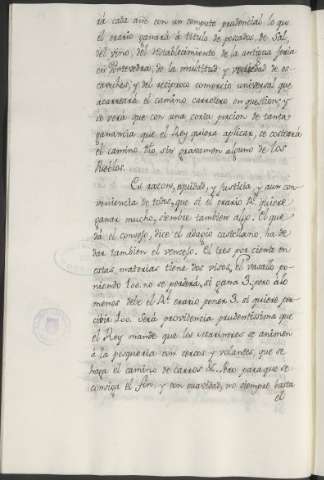 rà cada año con un computo prudencial lo que
el erario ganarà à titulo de pescados, de sal,
del vino, del establecimiento de la antigua feria
en Pontevedra, de la multitud y variedad de es-
cabeches, y del reciproco comercio universal que
acarrearà el camino carretero en question; y
se verà que con una corta porcion de tanta
ganancia que el Rey quiera aplicar, se costearà
el camino dho, sin gravamen alguno de los
Pueblos.
En razon, equidad, y justicia y aun con-
veniencia de todos, que si el erario Rl. quiere
ganar mucho, siembre tambien algo. El que
dà el consejo, dice el adagio castellano, ha de
dar tambien el vencejo. El tres por ciento en
estas materias tiene dos visos. El vasallo po-
niendo 100. no se perderà, si gana 3. pero à lo
menos debe el Rl. erario poner 3. si quiere per-
cibir 100. Serà providencia prudentissima que
el Rey mande que los Marineros se animen
à la pesqueria con cercos y volantes, que se
haga el camino de carros dho. Pero para que se
consiga el fin, y con suavidad, no siempre basta
el